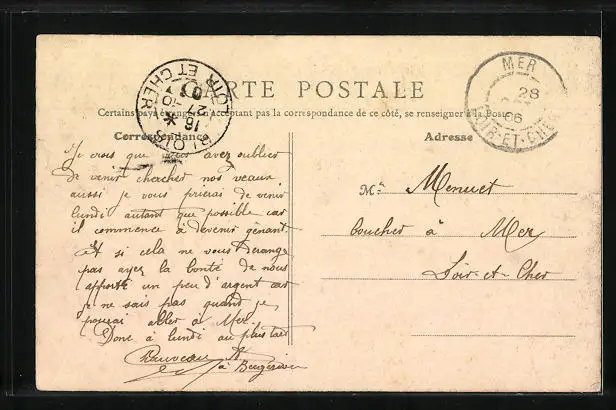 CARTE POSTALE
Certains pays étrangers n'acceptant pas la correspondance de ce côté, se renseigner à la Poste
Correspondance
Adresse
BLOIS
LOIR ET CHER
16
27
10
MER
28
06
LOIR-ET-CHER
Je crois que avez oublier
de venir chercher nos veaux
aussi je vous prierai de venir
lundi autant que possible car
il commence à devenir gênant
Et si cela ne vous derange
pas ayez la bonté de nous
apporté un peu d'argent car
je ne sais pas quand je
pourai aller à Mer.
Donc à lundi au plus tard
Chauveau
à
Mr Menuet
boucher à Mer
Loir-et-Cher